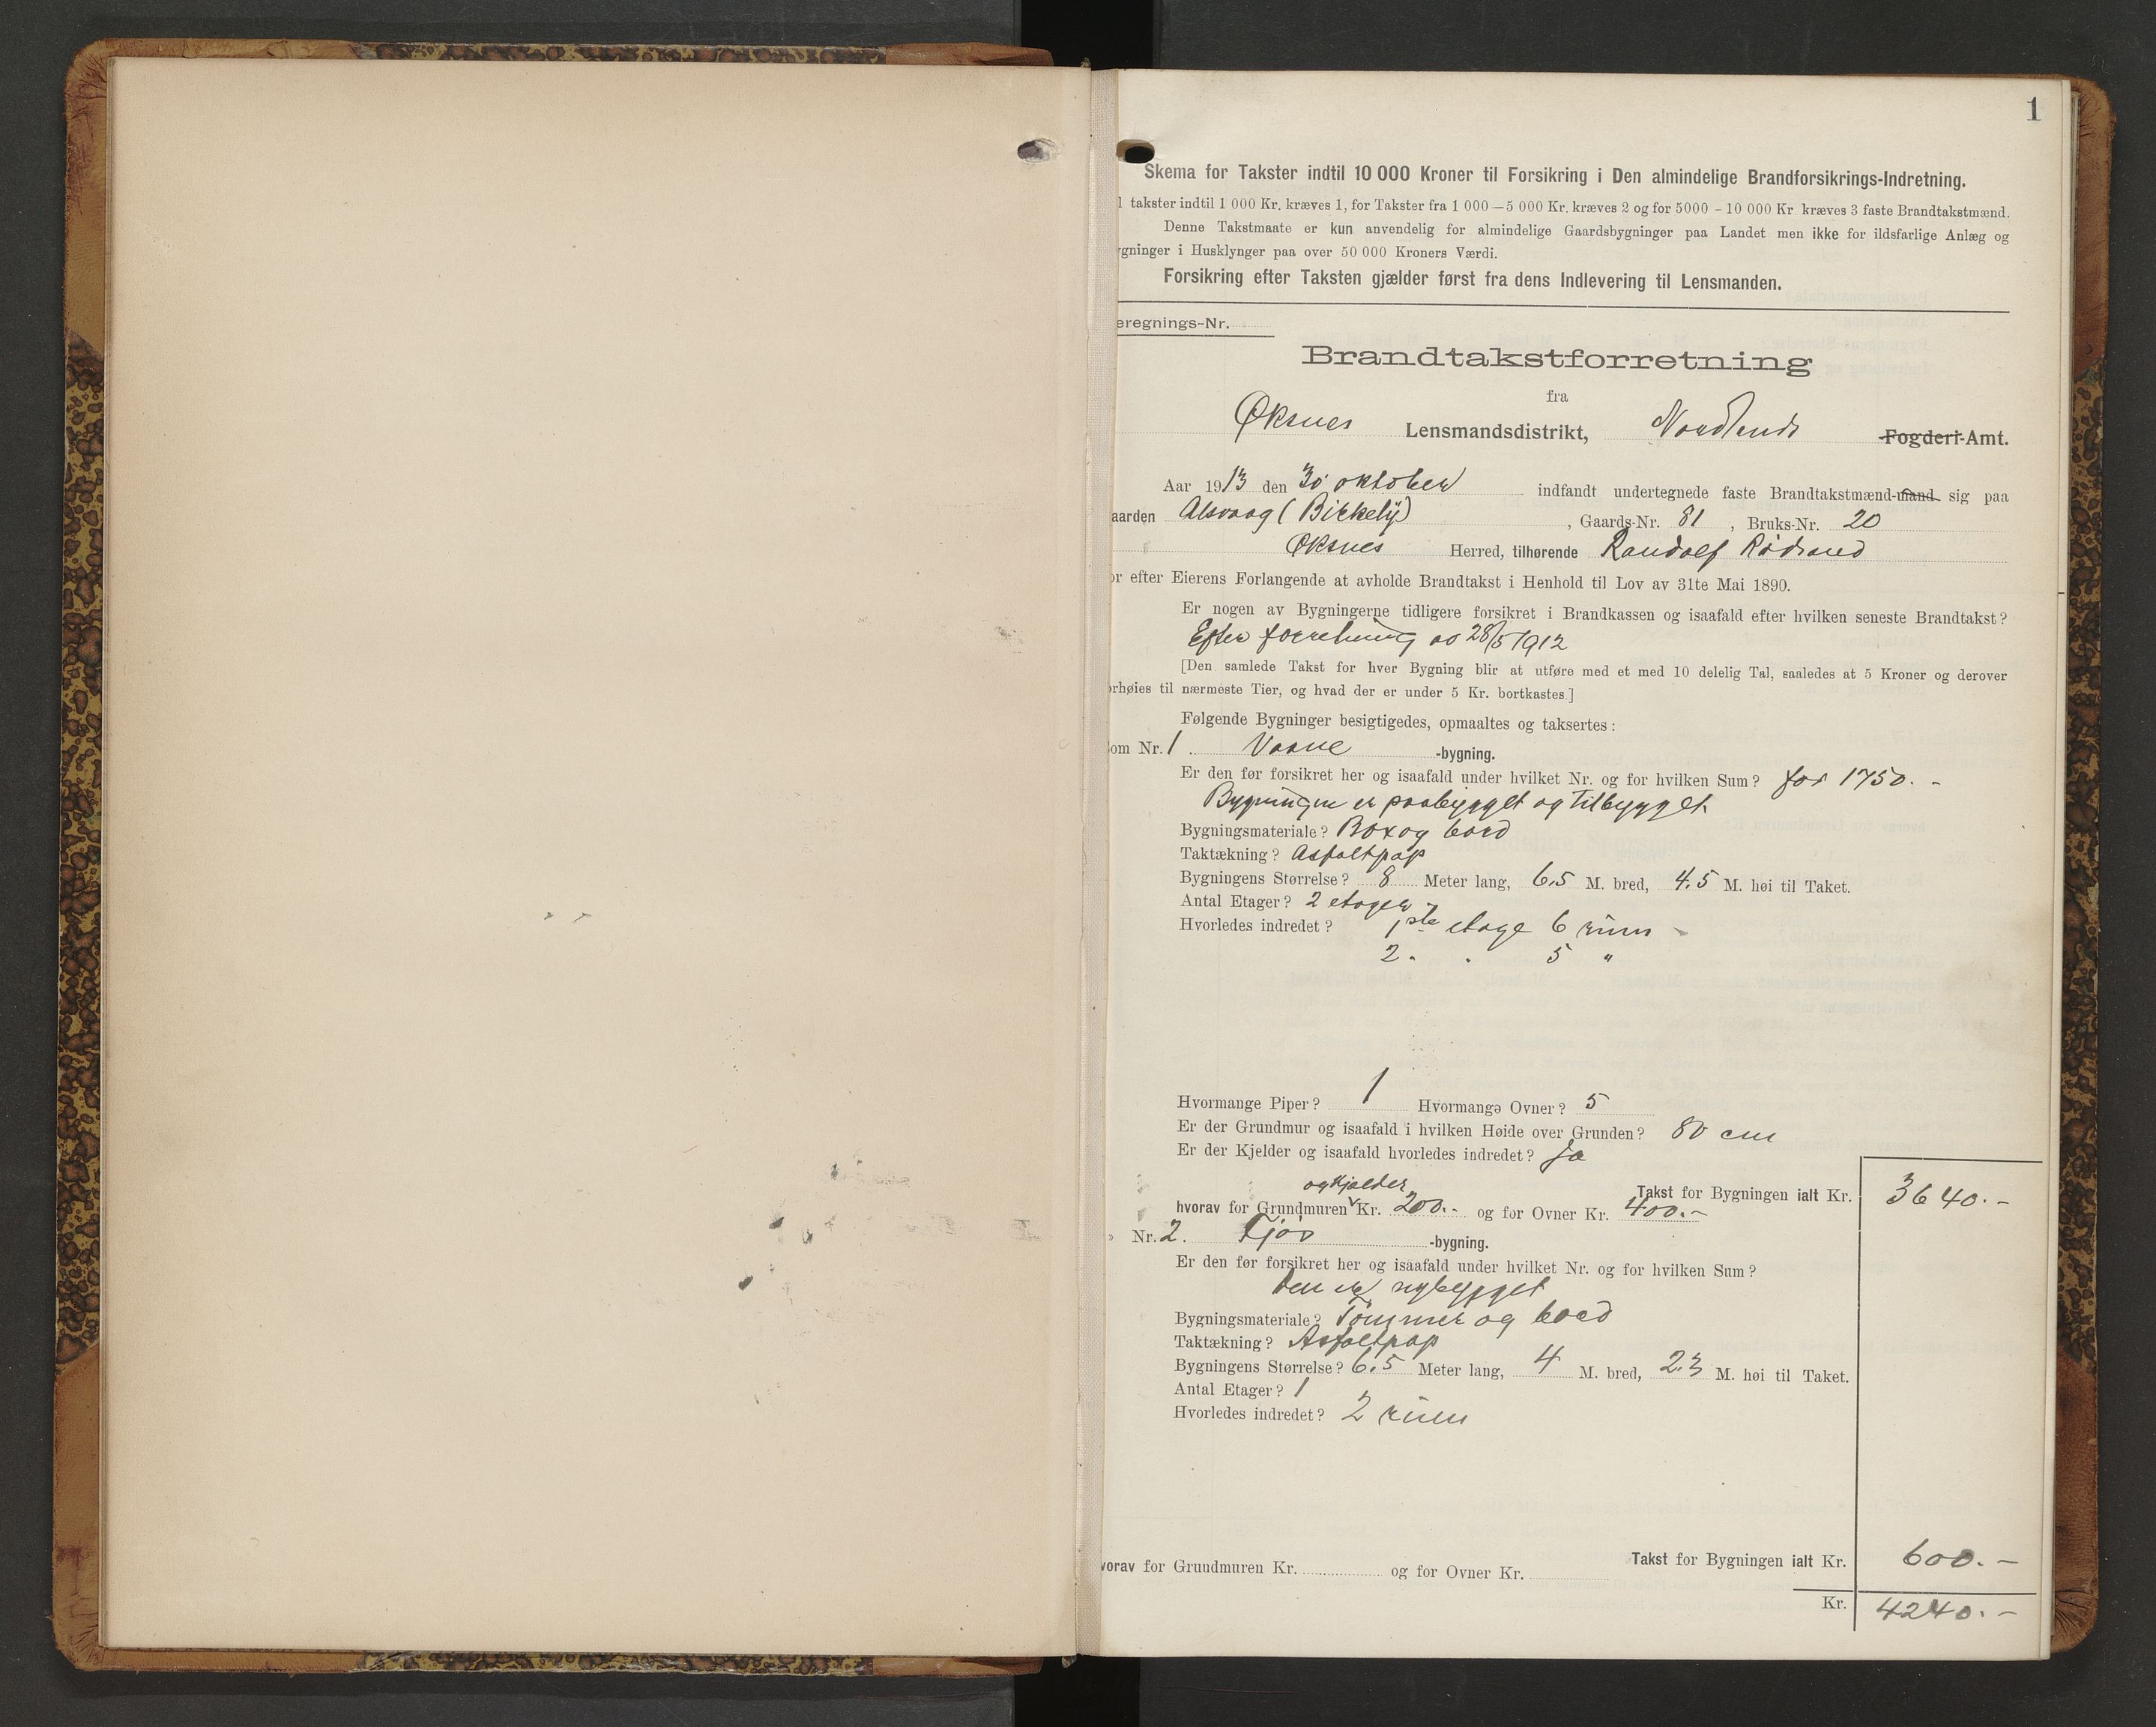 1
Skema for Takster indtil 10 000 Kroner til Forsikring i Den almindelige Brandforsikrings-Indretning.
l takster indtil 1 000 Kr. kræves 1, for Takster fra 1 000—5 000 Kr. kræves 2 og for 5000 - 10 000 Kr kræves 3 faste Brandtakstmænd.
Denne Takstmaate er kun anvendelig for almindelige Gaardsbygninger paa Landet men ikke for ildsfarlige Anlæg og
ygninger i Husklynger paa over 50 000 Kroners Værdi.
Forsikring efter Taksten gjælder først fra dens Indlevering til Lensmanden.
eregnings-Nr.
Brandtakstforretning
fra
Øksnes Lensmandsdistrikt, Nordlands Fogderi-Amt.
Aar 1913 den 30 oktober indfandt undertegnede faste Brandtakstmænd-mand sig paa
aarden Alsvaag (Birkely), Gaards-Nr. 81, Bruks-Nr. 20
Øksnes Herred, tilhørende Randolf Rødsand
or efter Eierens Forlangende at avholde Brandtakst i Henhold til Lov av 31te Mai 1890.
Er nogen av Bygningerne tidligere forsikret i Brandkassen og isaafald efter hvilken seneste Brandtakst?
Efter forretning av 28/5 1912
[Den samlede Takst for hver Bygning blir at utføre med et med 10 delelig Tal, saaledes at 5 Kroner og derover
orhøies til nærmeste Tier, og hvad der er under 5 Kr. bortkastes.]
Følgende Bygninger besigtigedes, opmaaltes og taksertes:
om Nr. 1. Vaane -bygning.
Er den før forsikret her og isaafald under hvilket Nr. og for hvilken Sum? for 1750.-
Bygningen er paabygget og tilbygget.
Bygningsmateriale? Box og bord
Taktækning? Asfaltpap
Bygningens Størrelse? 8 Meter lang, 6.5 M. bred, 4.5 M. høi til Taket.
Antal Etager? 2 etager
Hvorledes indredet? 1ste etage 6 rum
2. . 5 "
Hvormange Piper? 1 Hvormange Ovner? 5
Er der Grundmur og isaafald i hvilken Høide over Grunden? 80 cm
Er der Kjelder og isaafald hvorledes indredet? Ja
Takst for Bygningen ialt Kr. 3640.-
og Kjælder
hvorav for Grundmuren Kr. 200.- og for Ovner Kr. 400.-
» Nr. 2. Fjøs -bygning.
Er den før forsikret her og isaafald under hvilket Nr. og for hvilken Sum?
Den er nybygget
Bygningsmateriale? Tømmer og bord
Taktækning? Asfaltpap
Bygningens Størrelse? 6.5 Meter lang, 4 M. bred, 2.3 M. høi til Taket.
Antal Etager? 1
Hvorledes indredet? 2 rum
Takst for Bygningen ialt Kr. 600.-
vorav for Grundmuren Kr. og for Ovner Kr.
Kr. 4240.-